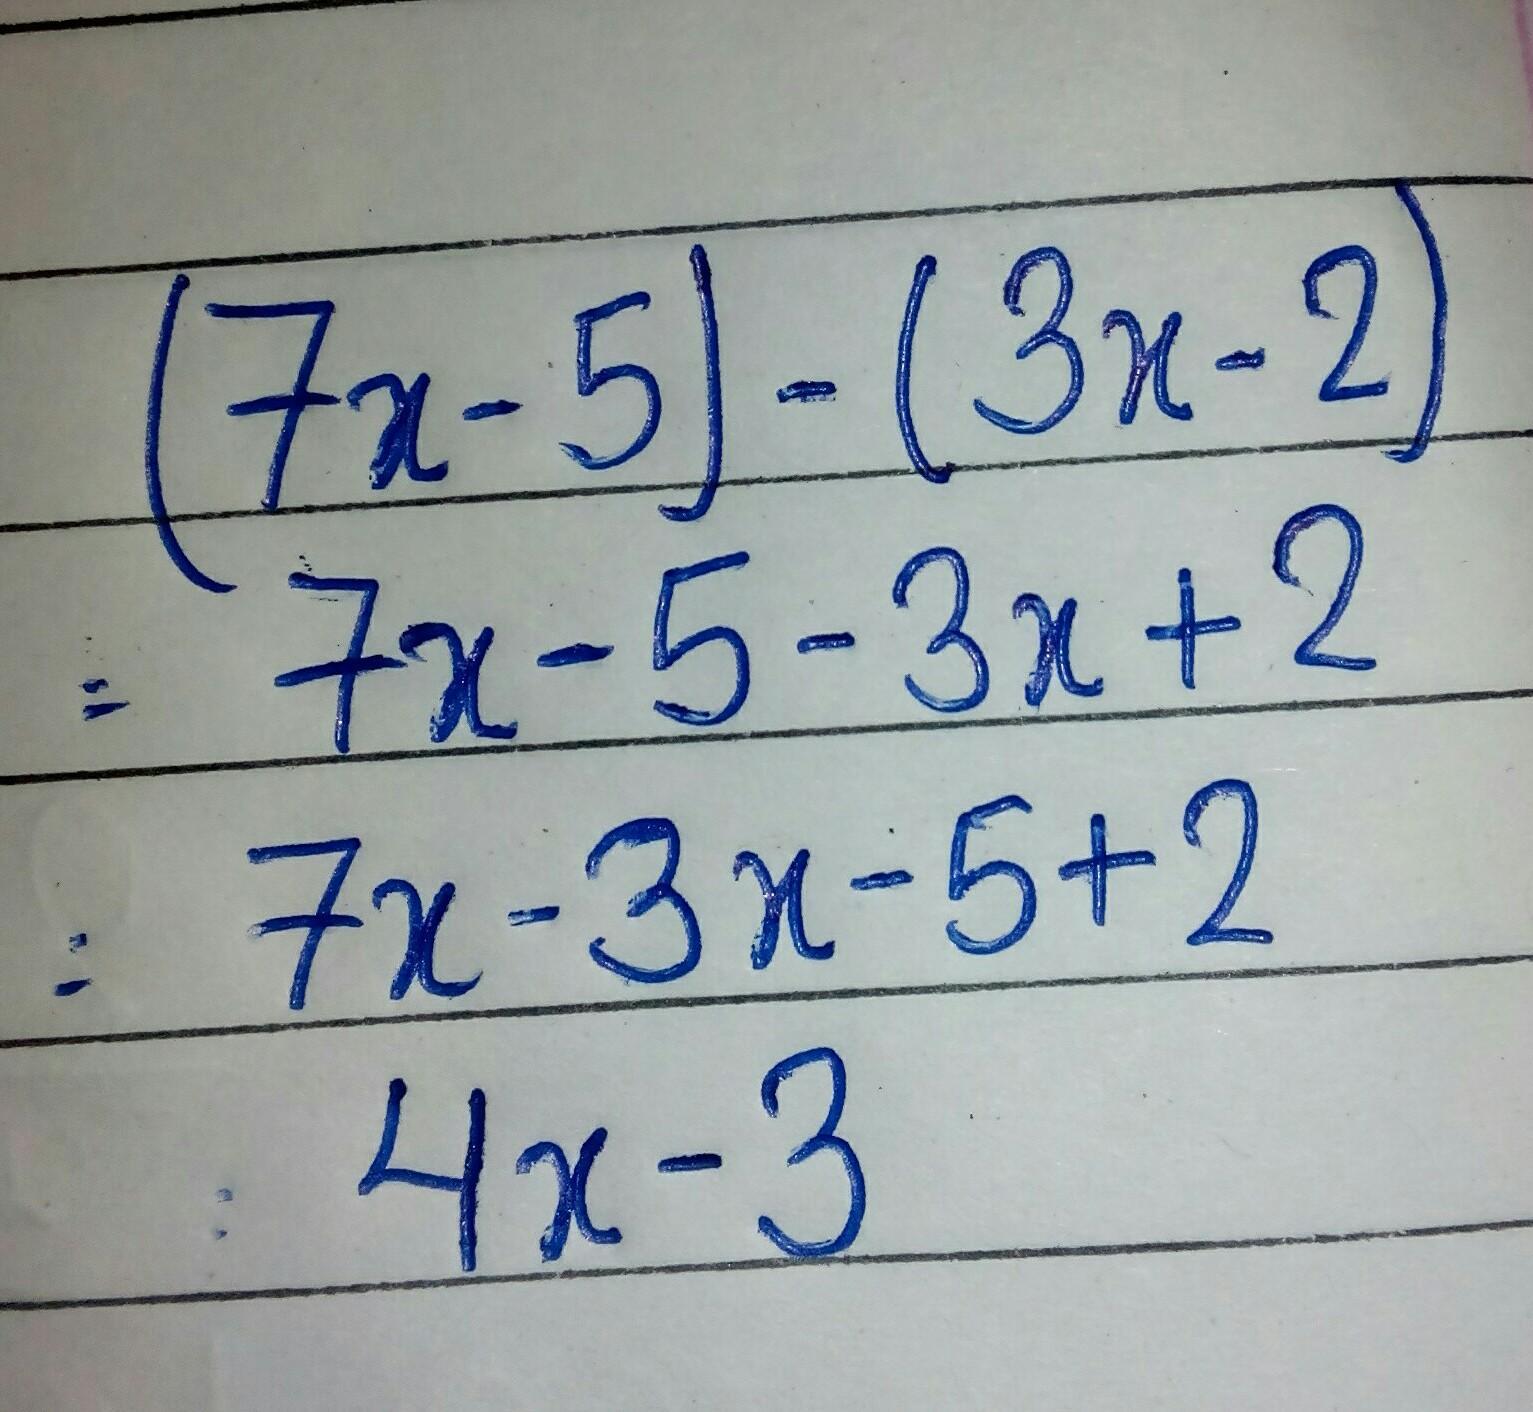 (7x-5)-(3x-2)
= 7x-5-3x+2
= 7x-3x-5+2
: 4x-3